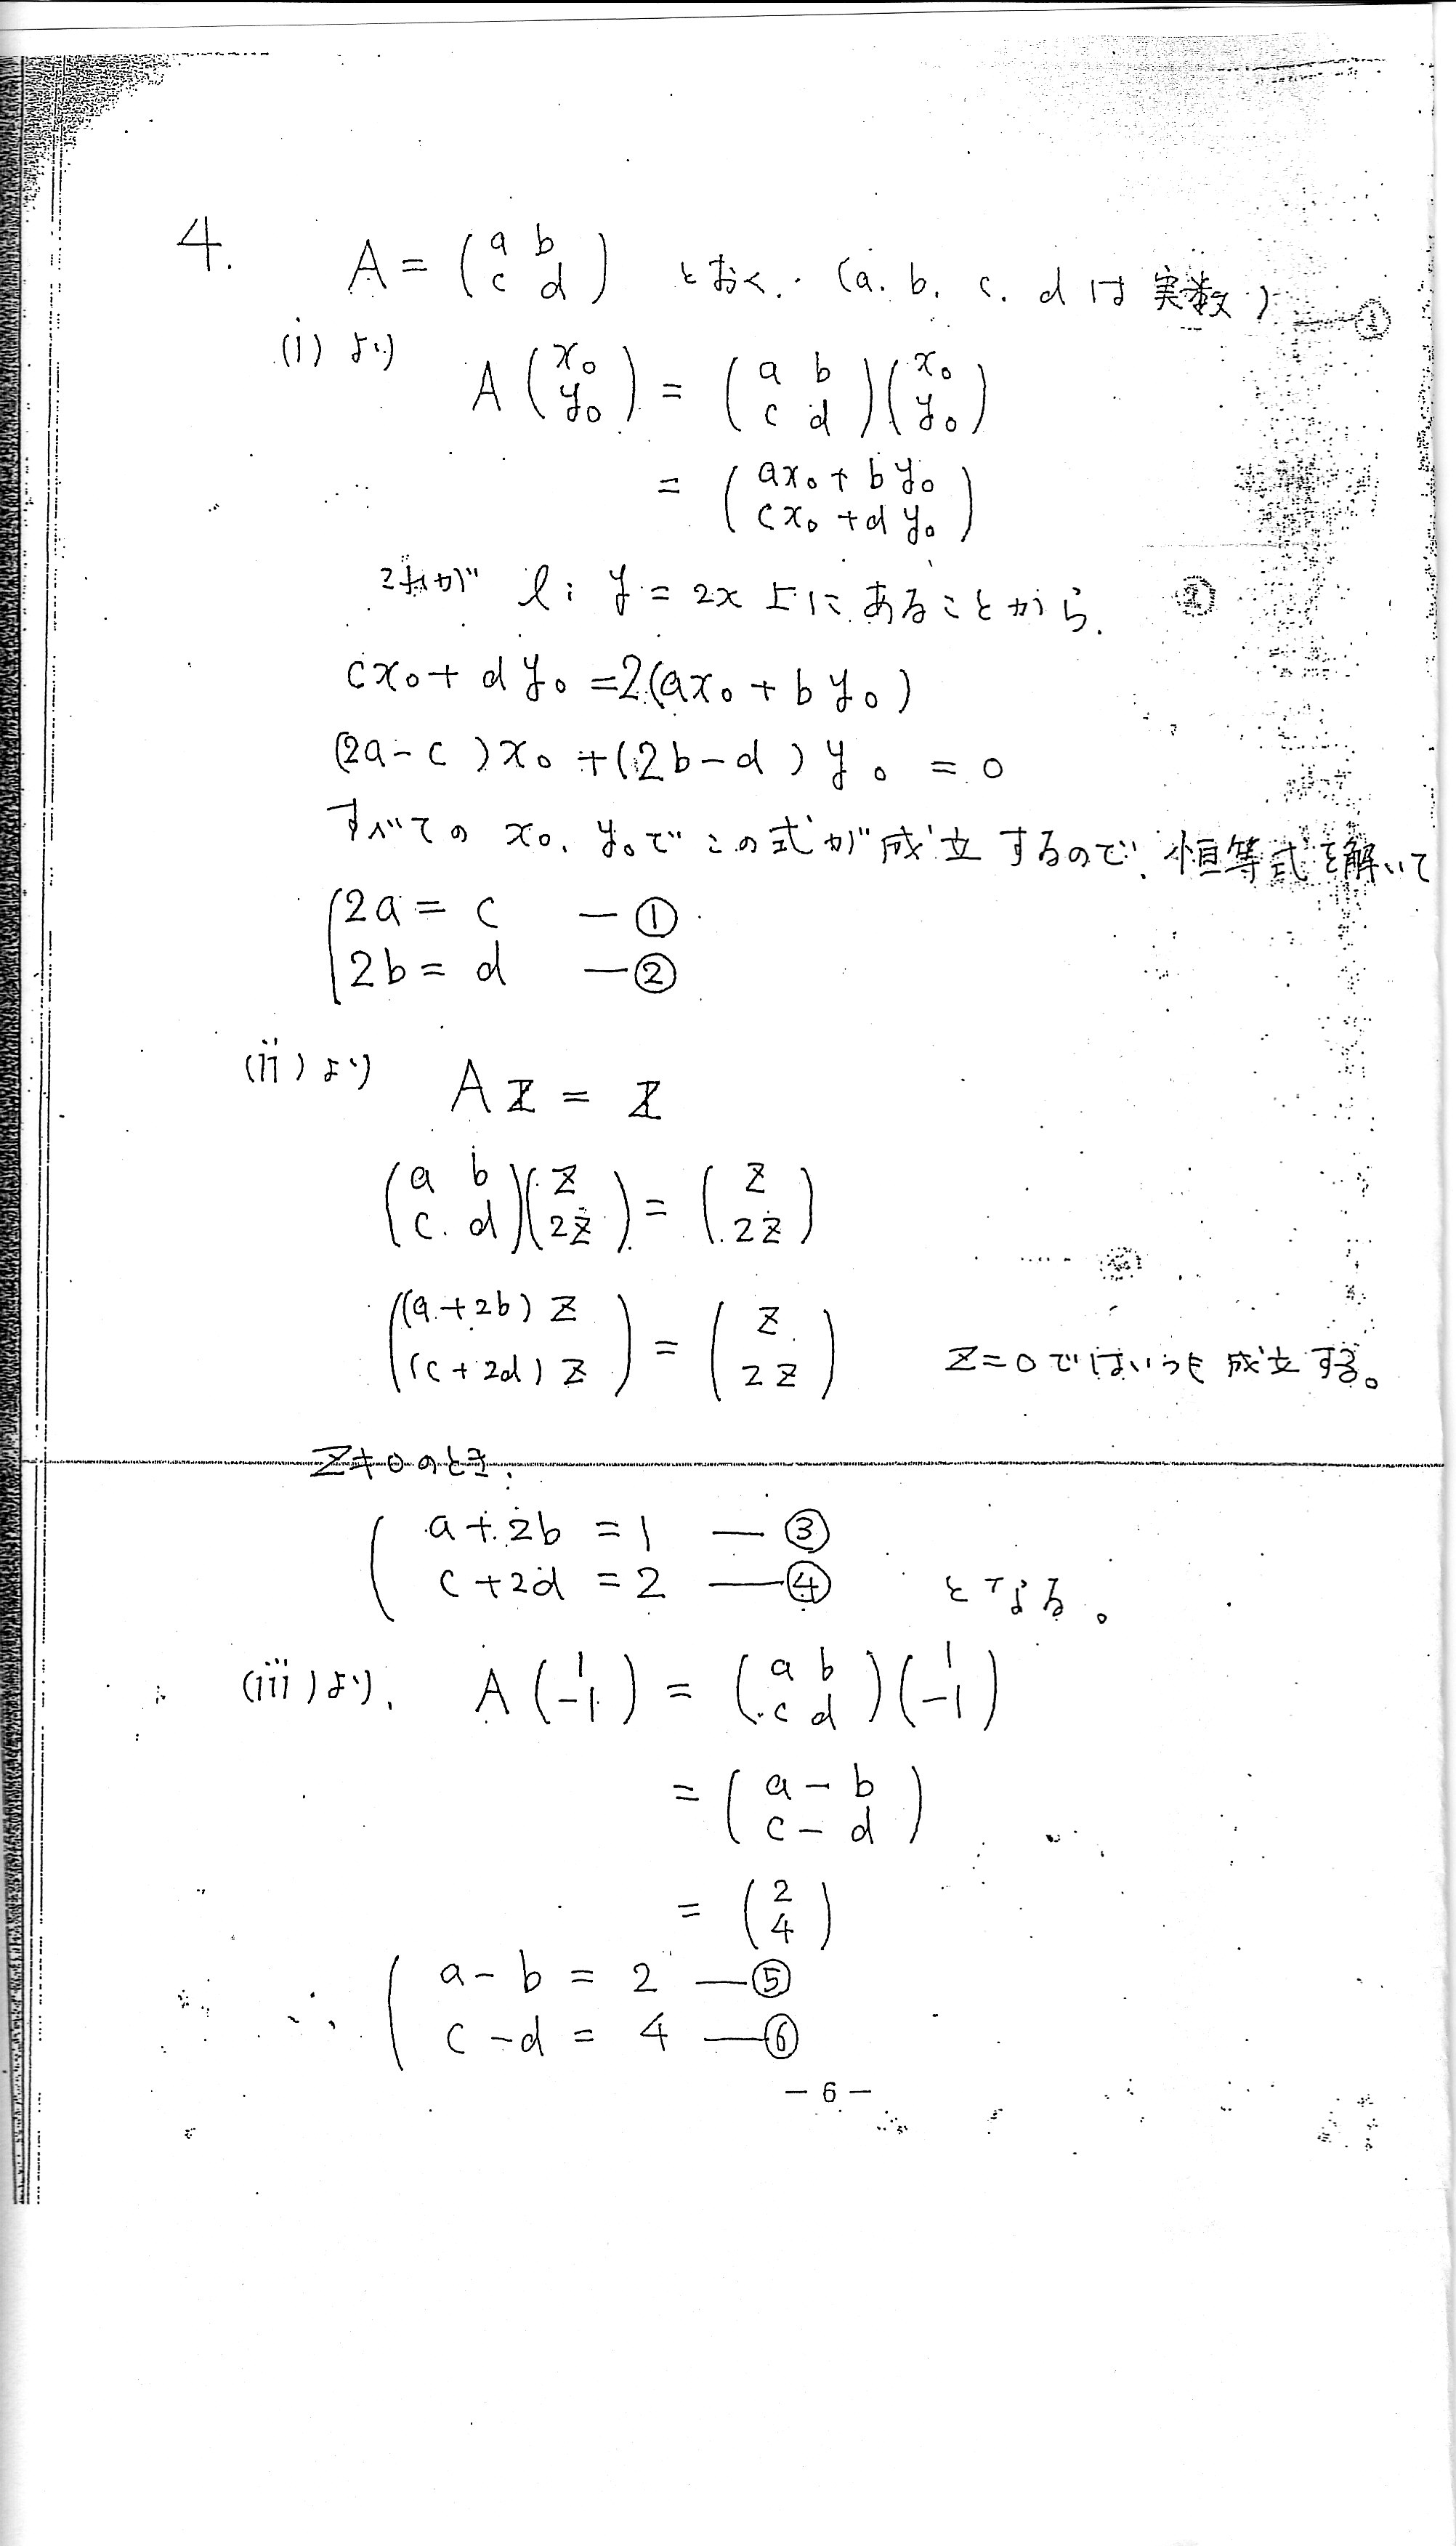 4. A = (a b
c d) とおく. (a. b. c. d は実数)
(i) より A(x₀
y₀) = (a b
c d)(x₀
y₀)
= (ax₀ + by₀
cx₀ + dy₀)
これが l: y = 2x 上にあることから.
cx₀ + dy₀ = 2(ax₀ + by₀)
(2a - c)x₀ + (2b - d)y₀ = 0
すべての x₀. y₀で この式が成立するので. 恒等式を解いて
2a = c ― ①
2b = d ― ②
(ii) より AZ = Z
(a b
c d)(z
2z) = (z
2z)
((a+2b)z
(c+2d)z) = (z
2z) z=0ではいつも成立する。
z≠0のとき.
a + 2b = 1 ― ③
c + 2d = 2 ― ④ となる。
(iii)より. A(1
-1) = (a b
c d)(1
-1)
= (a - b
c - d)
= (2
4)
∴ a - b = 2 ― ⑤
c - d = 4 ― ⑥
― 6 ―